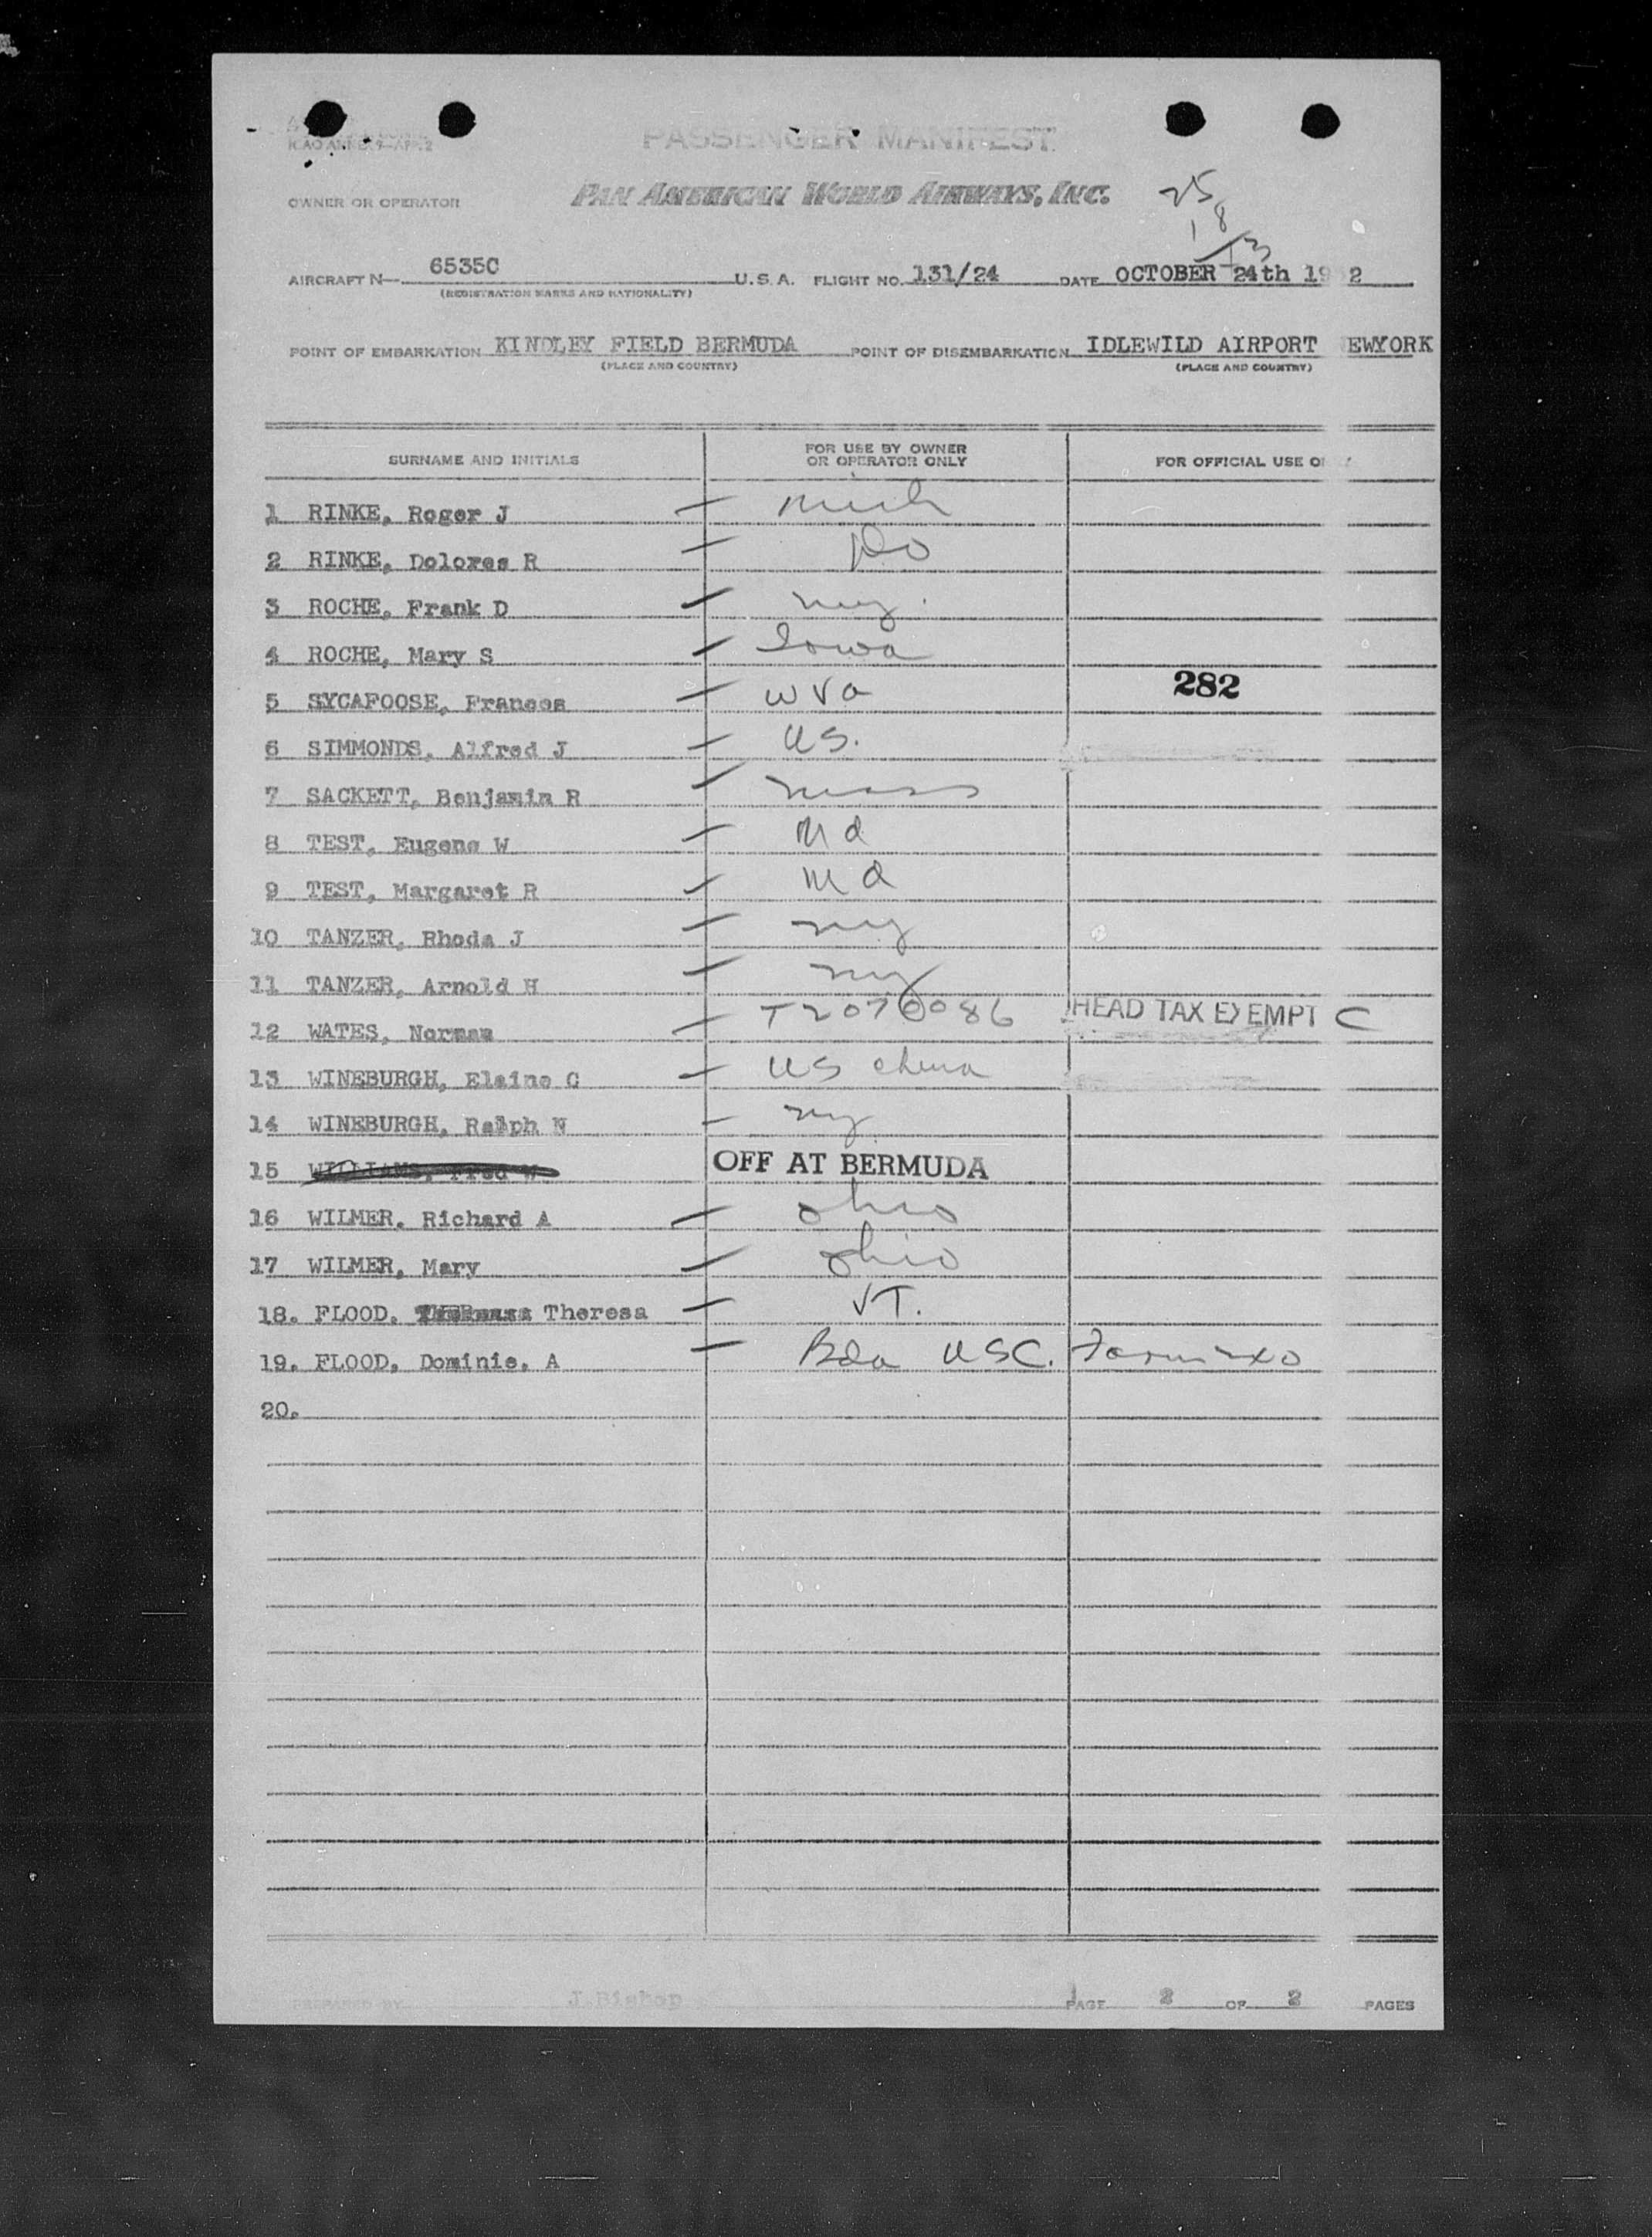 ICAO ANNEX 9-APP. 2
PASSENGER MANIFEST
OWNER OR OPERATOR PAN AMERICAN WORLD AIRWAYS, INC.
25
18
13
AIRCRAFT N— 6535C U.S.A. FLIGHT NO. 131/24 DATE OCTOBER 24th 19 2
(REGISTRATION MARKS AND NATIONALITY)
POINT OF EMBARKATION KINDLEY FIELD BERMUDA POINT OF DISEMBARKATION IDLEWILD AIRPORT EWYORK
(PLACE AND COUNTRY) (PLACE AND COUNTRY)
SURNAME AND INITIALS FOR USE BY OWNER OR OPERATOR ONLY FOR OFFICIAL USE O
1 RINKE, Roger J — mich
2 RINKE, Dolores R — Do
3 ROCHE, Frank D — ny.
4 ROCHE, Mary S — Iowa
5 SYCAFOOSE, Frances — W Va 282
6 SIMMONDS, Alfred J — US.
7 SACKETT, Benjamin R — mass
8 TEST, Eugene W — Md
9 TEST, Margaret R — Md
10 TANZER, Rhoda J — ny
11 TANZER, Arnold H — ny
12 WATES, Norman — T2070086 HEAD TAX EXEMPT C
13 WINEBURGH, Elaine C — US china
14 WINEBURGH, Ralph N — ny
15 WILLIAMS, Fred W OFF AT BERMUDA
16 WILMER, Richard A — ohio
17 WILMER, Mary — ohio
18. FLOOD, Theresa — VT.
19. FLOOD, Dominic, A — Bda USC.
20.
PREPARED BY J.Bishop PAGE 2 OF 2 PAGES